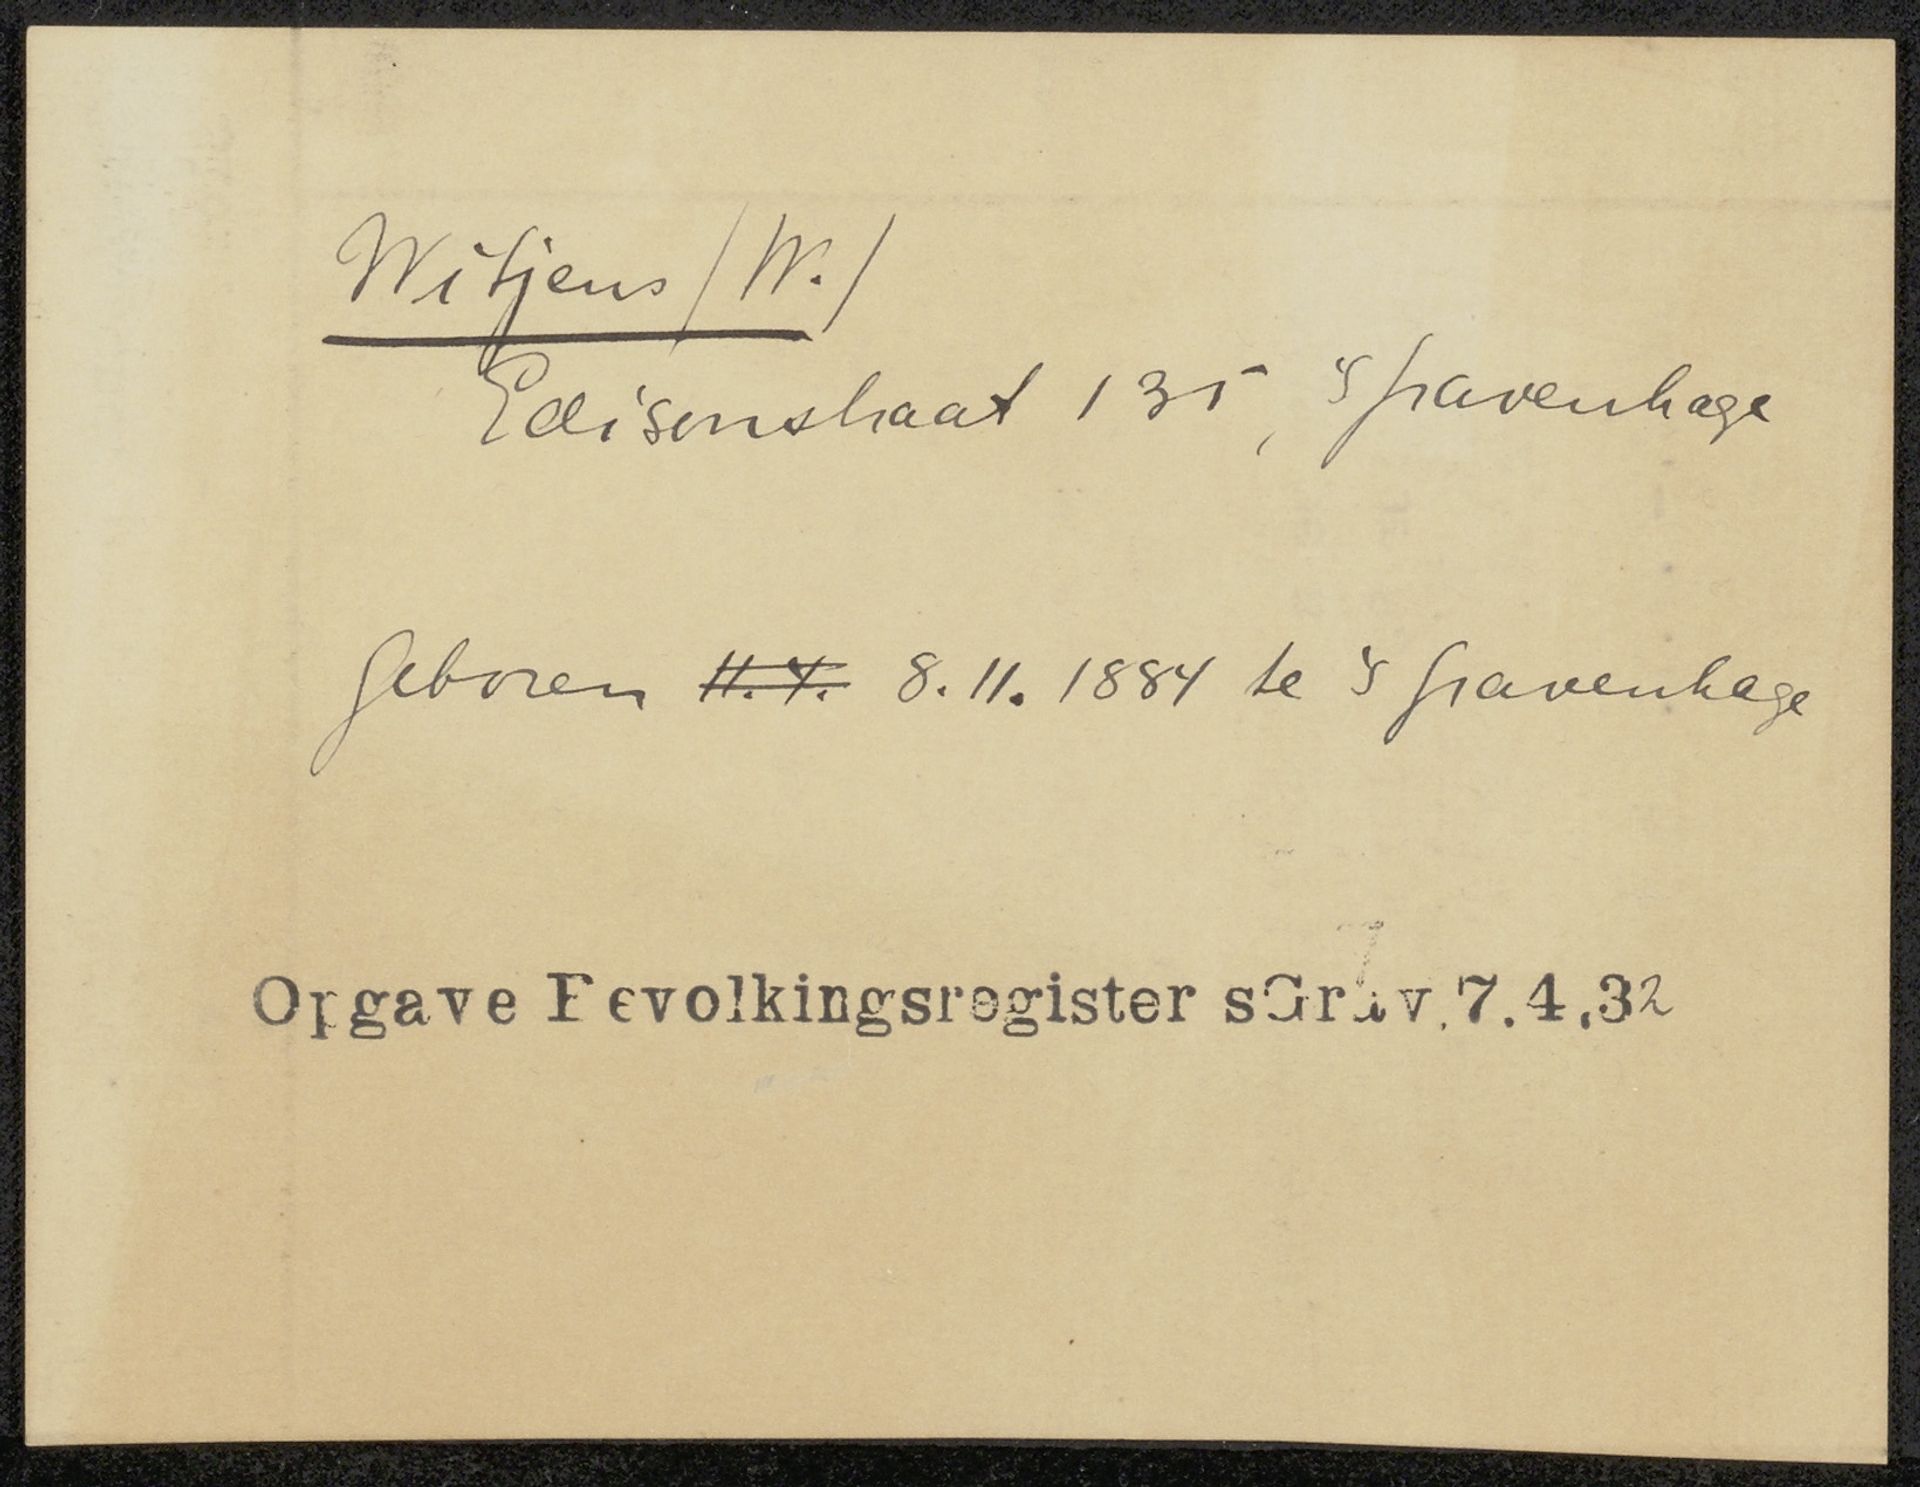 Witjens (W.)
Edisonstraat 135, 's Gravenhage
geboren 11.4. 8.11.1884 te 's Gravenhage
Opgave Bevolkingsregister sGrav.7.4.32